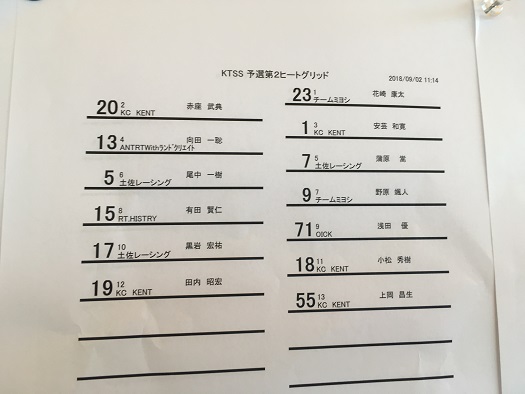 KTSS 予選第2ヒートグリッド
2018/09/02 11:14
23 1 花崎 康太
チームミヨシ
20 2 赤座 武典
KC KENT
1 3 安芸 和寛
KC KENT
13 4 向田 一聡
ANTRTWithランドクリエイト
7 5 蒲原 嵩
土佐レーシング
5 6 尾中 一樹
土佐レーシング
9 7 野原 颯人
チームミヨシ
15 8 有田 賢仁
RT.HISTRY
71 9 浅田 優
OICK
17 10 黒岩 宏祐
土佐レーシング
18 11 小松 秀樹
KC KENT
19 12 田内 昭宏
KC KENT
55 13 上岡 昌生
KC KENT